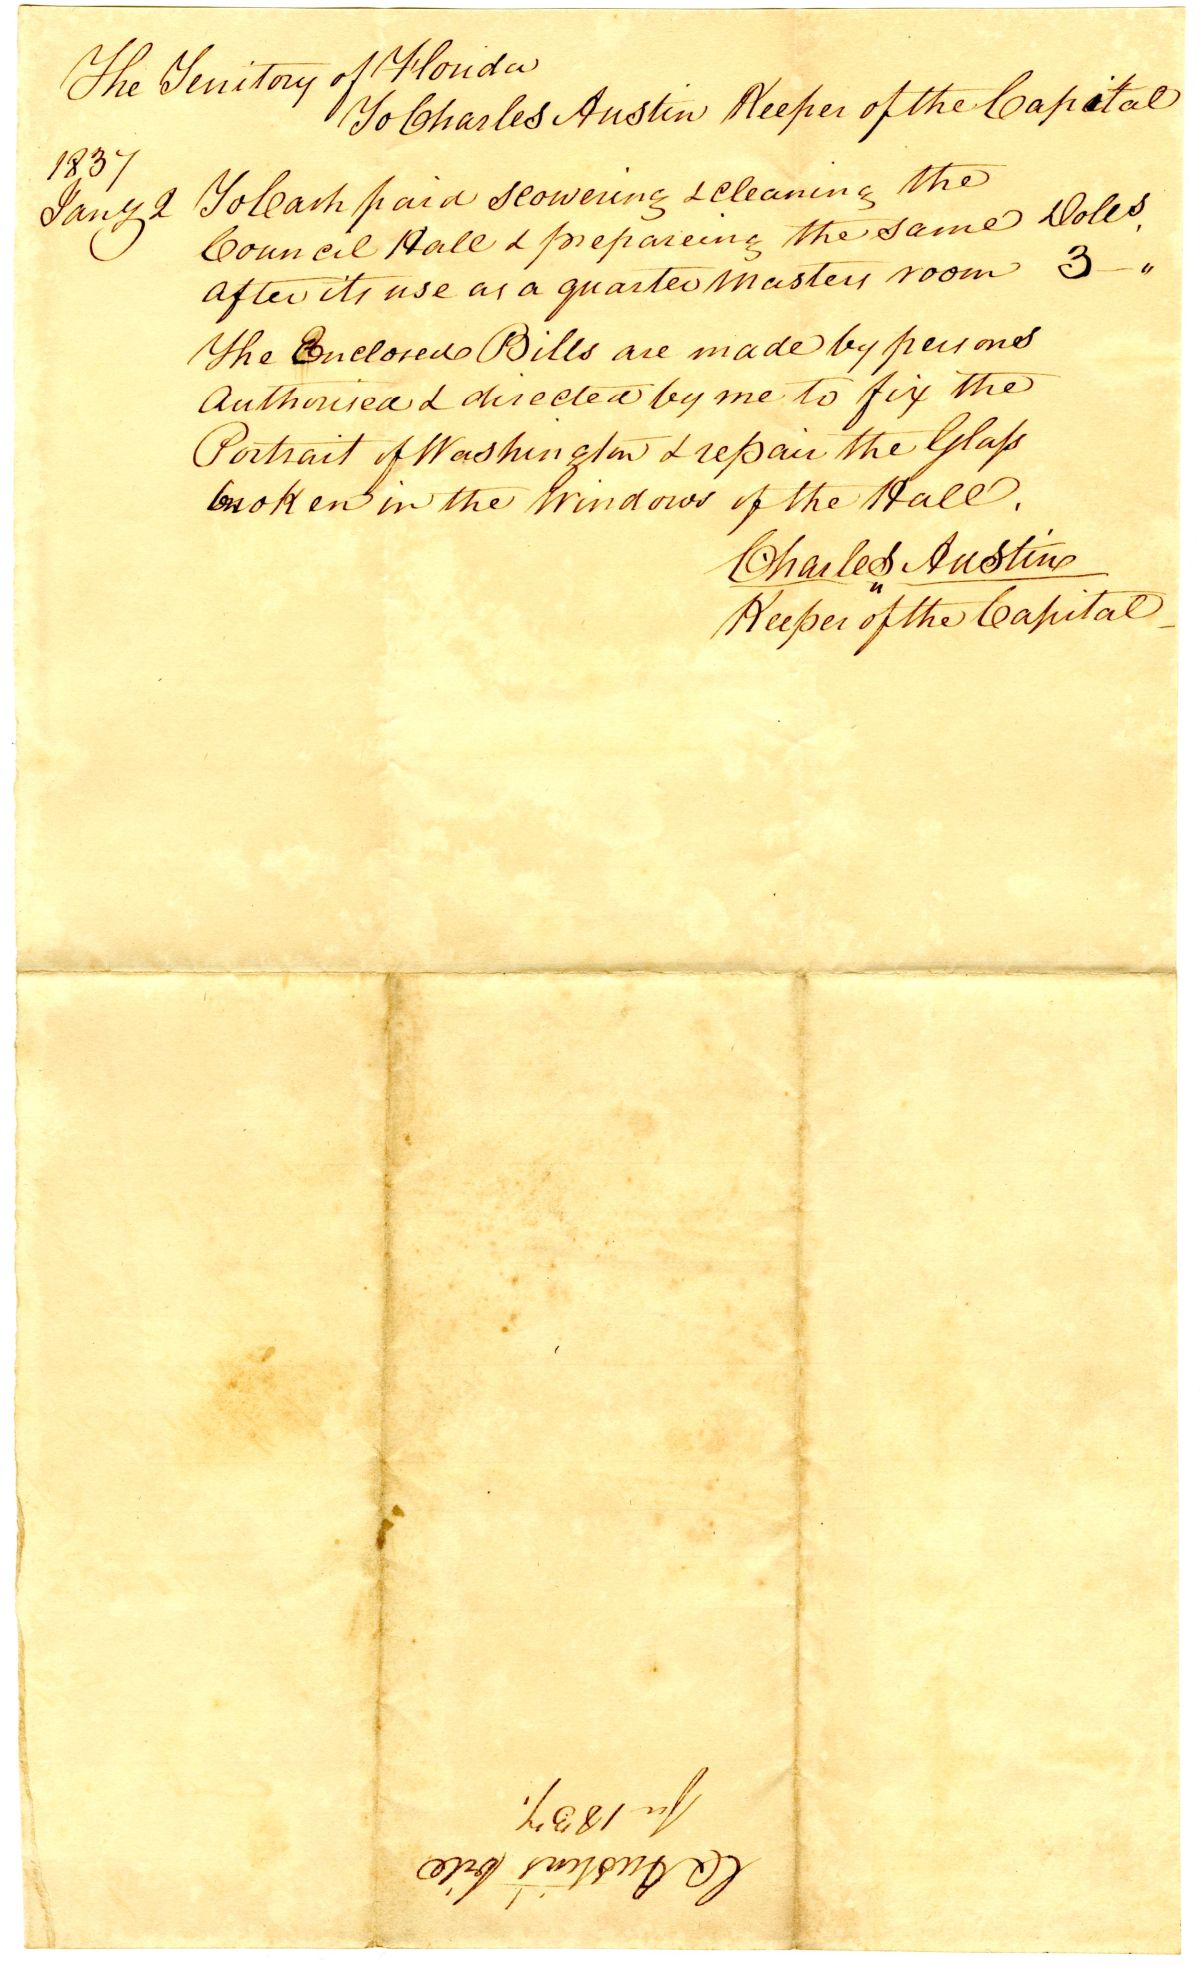 The Territory of Florida
To Charles Austin Keeper of the Capital
1837
Jany 2 To Cash paid scowering & cleaning the
Council Hall & prepareing the same Dols.
after its use as a quarter Masters room 3 — "
The Enclosed Bills are made by persones
Authorised & directed by me to fix the
Portrait of Washington & repair the Glass
broken in the Windows of the Hall.
Charles Austin
Keeper of the Capital
Austin's bill
1837.